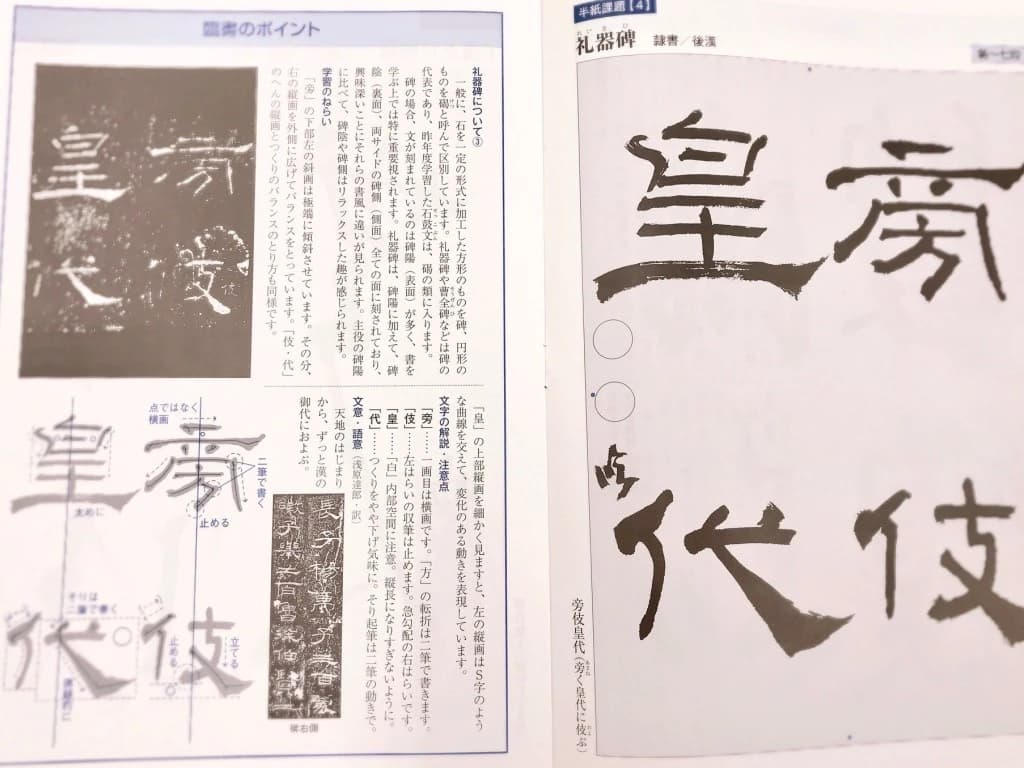 半紙課題【4】
礼器碑 隷書/後漢
旁伎
皇代
旁伎皇代(旁く皇代に伎ぶ)
臨書のポイント
礼器碑について③
一般に、石を一定の形式に加工した方形のものを碑、円形の
ものを碣と呼んで区別しています。礼器碑や曹全碑などは碑の
代表であり、昨年度学習した石鼓文は、碣の類に入ります。
碑の場合、文が刻まれているのは碑陽(表面)が多く、書を
学ぶ上では特に重要視されます。礼器碑は、碑陽に加えて、碑
陰(裏面)、両サイドの碑側(側面)全ての面に刻されており、
興味深いことにそれらの書風に違いが見られます。主役の碑陽
に比べて、碑陰や碑側はリラックスした趣が感じられます。
学習のねらい
「旁」の下部左の斜画は極端に傾斜させています。その分、
右の縦画を外側に広げてバランスをとっています。「伎・代」
のへんの縦画とつくりのバランスのとり方も同様です。
旁伎
皇代
「皇」の上部縦画を細かく見ますと、左の縦画はS字のよう
な曲線を交えて、変化のある動きを表現しています。
文字の解説・注意点
「旁」……一画目は横画です。「方」の転折は二筆で書きます。
「伎」……左はらいの収筆は止めます。急勾配の右はらいです。
「皇」……「白」内部空間に注意。縦長になりすぎないように。
「代」……つくりをやや下げ気味に。そり起筆は二筆の動きで。
文意・語意(浅原達郎・訳)
天地のはじまり
から、ずっと漢の
御代におよぶ。
碑右側
点ではなく
横画
二筆で書く
止める
太めに
立てる
止める
そりは
二筆で書く
旁伎
皇代